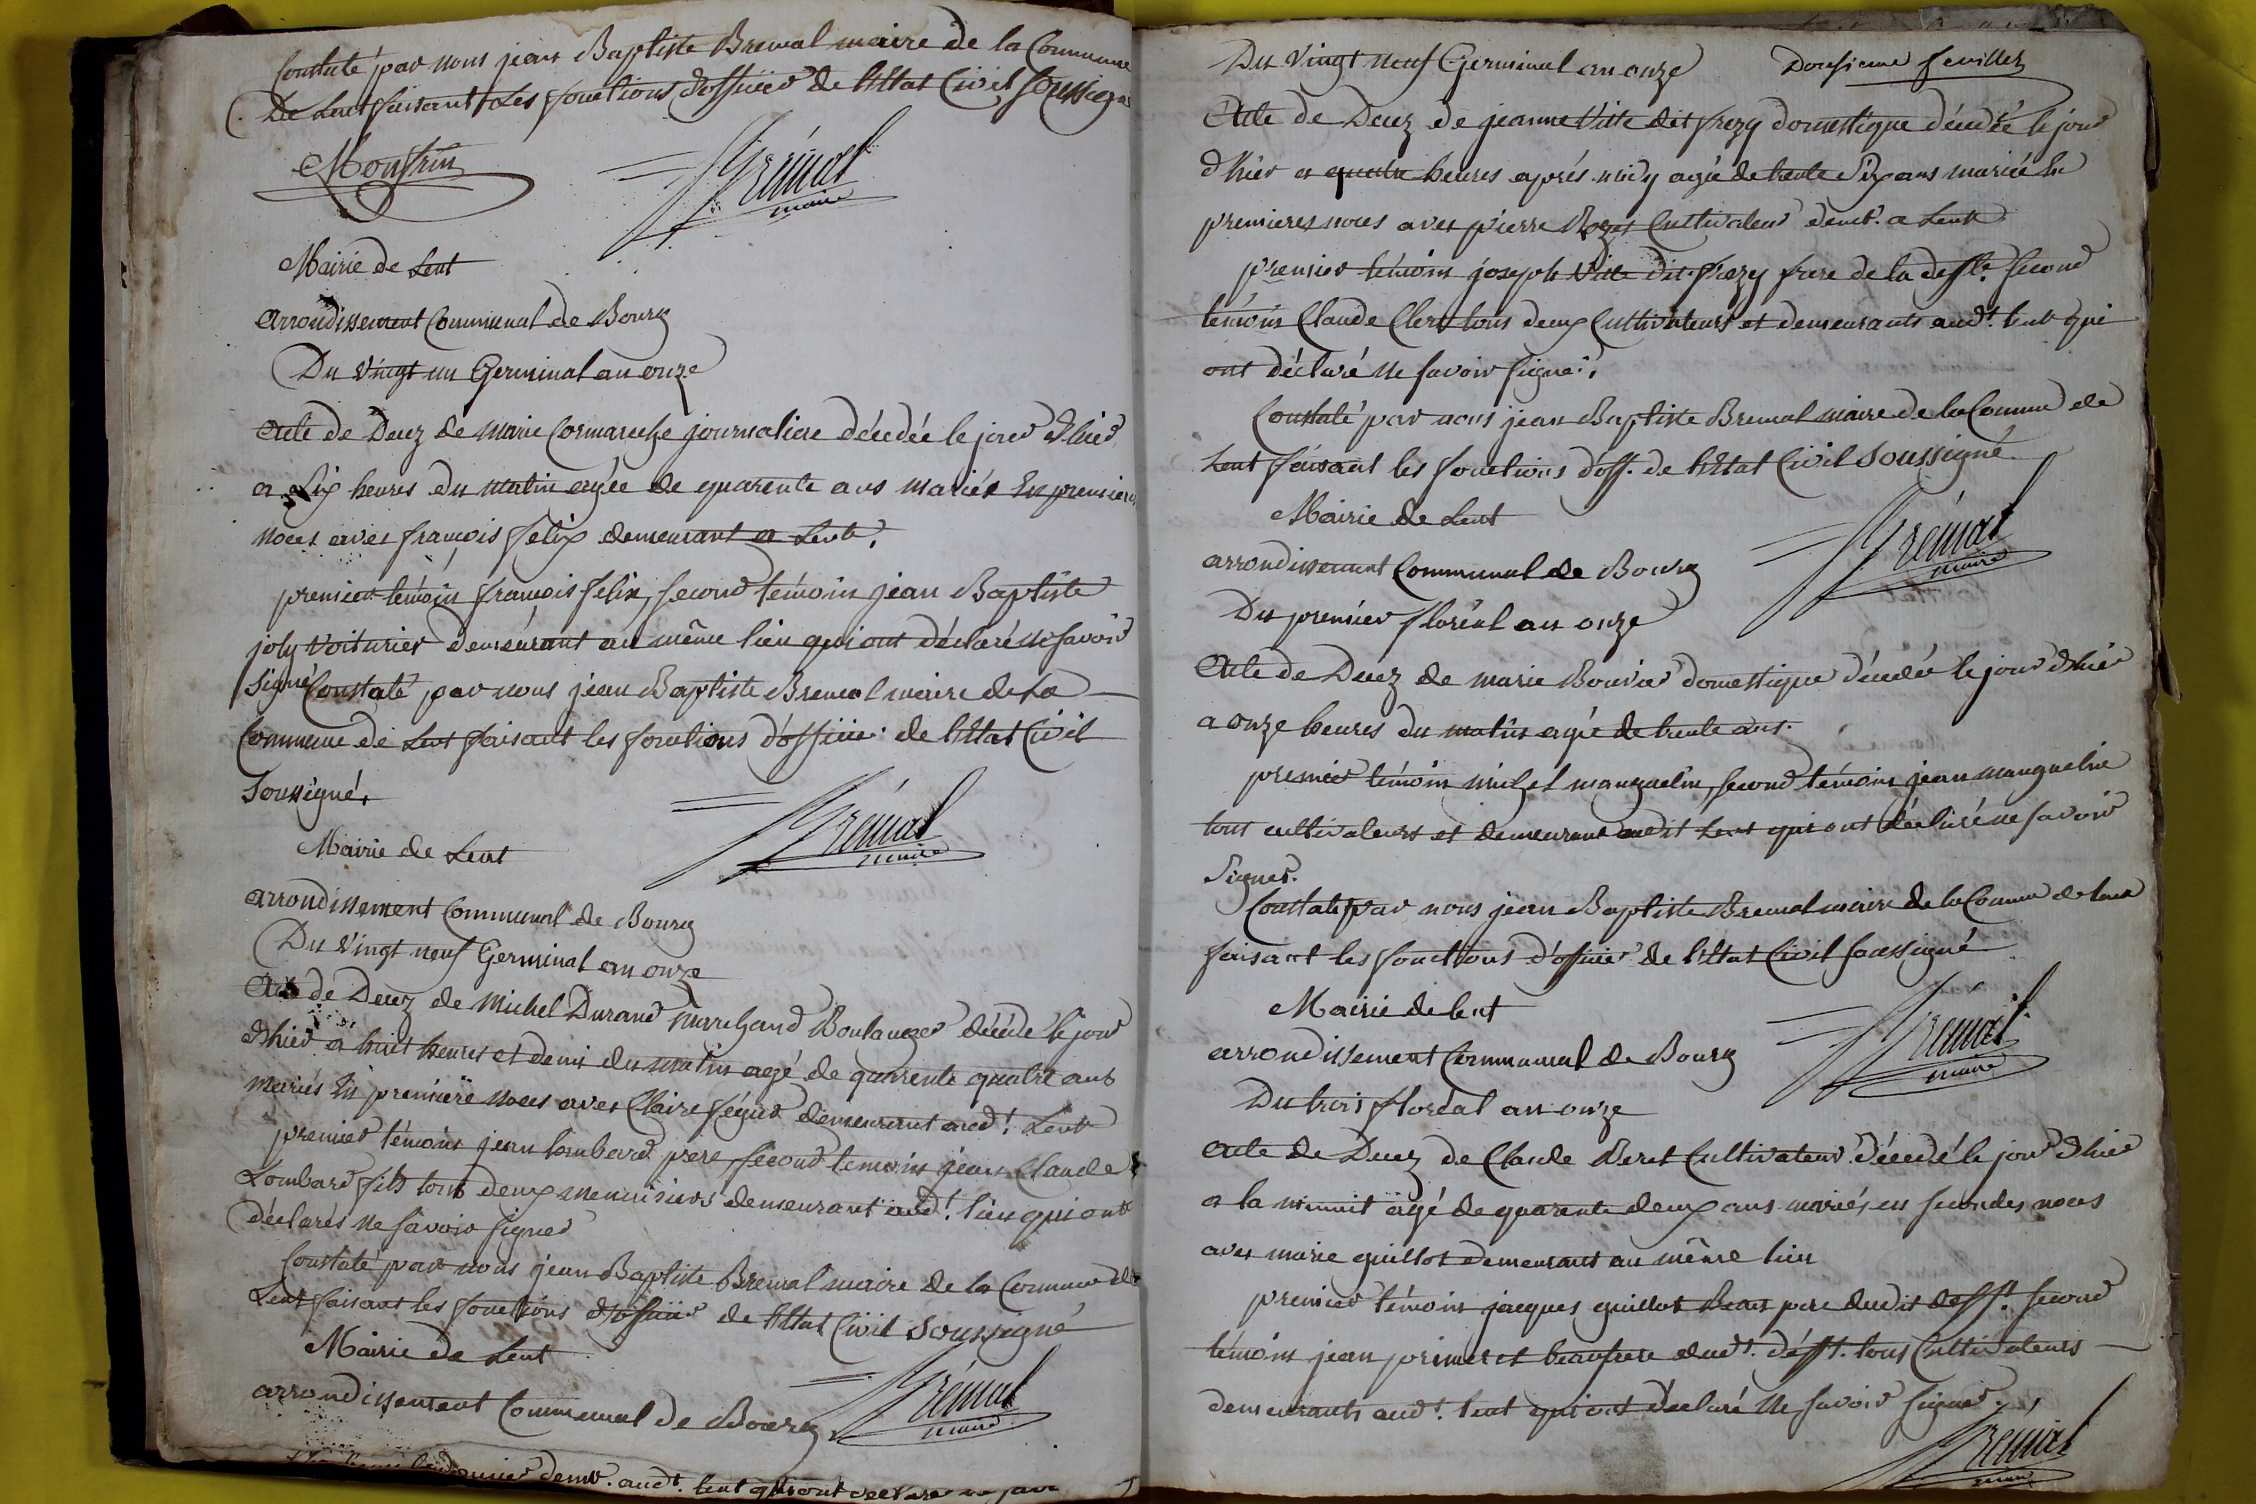 Constaté par nous jean Baptiste Bremal maire de la Commune
De Lent faisant les fonctions d'officier de l'Etat Civil soussigné
Monfrin
Brémal
maire
Mairie de Lent
arrondissement Communal de Bourg
Du vingt un Germinal an onze
Acte de Decez de marie Cormareche journaliere décédée le jour d'hier
a six heures du matin agée de quarente ans mariée En premieres
noces avec françois Felix demeurant a Lent.
premier témoin françois felix, second témoin jean Baptiste
joly voiturier demeurant au même lieu qui ont déclaré ne savoir
signé Constaté par nous jean Baptiste Bremal maire de la
Commune de Lent faisant les fonctions d'officier de l'Etat Civil
soussigné.
Brémal
maire
Mairie de Lent
arrondissement Communal de Bourg
Du vingt neuf Germinal an onze
Acte de Decez de Michel Durand marchand Boulanger décédé le jour
d'hier a huit heures et demi du matin agé de quarente quatre ans
mariés En première noces avec Claire Féguet demeurant aud.t Lent
premier témoin jean lombard pere, second temoin jean Claude
Lombard fils tous deux menuisiers demeurant aud.t lieu qui ont
déclarés ne savoir signer
Constaté par nous jean Baptiste Bremal maire de la Commune de
Lent faisant les fonctions d'officier de l'Etat Civil soussigné
Brémal
maire
Mairie de Lent
arrondissement Communal de Bourg
demt. audt. lent qui ont declaré ne savoir
Du vingt neuf Germinal an onze
Dousieme feuillet
Acte de Decez de jeanne Vitte dit frezy domestique décédée le jour
d'hier a quatre heures aprés midy agée de trente six ans mariée En
premieres noces avec pierre Roger Cultivateur demt. a Lent
premier témoin joseph Vitte dit frezy frere de la deffte. second
témoin Claude Clerc tous deux Cultivateurs et demeurants audt. lent qui
ont déclaré ne savoir signé.
Constaté par nous jean Baptiste Bremal maire de la Comune de
Lent faisant les fonctions d'off. de l'Etat Civil soussigné
Brémal
maire
Mairie de Lent
arrondissement Communal de Bourg
Du premier floréal an onze
Acte de Decez de marie Bouvier domestique décédée le jour d'hier
a onze heures du matin agée de trente ans.
premier témoin michel manguelin, second témoin jean manguelin
tous cultivateurs et demeurant audit Lent qui ont déclaré ne savoir
Signer.
Constaté par nous jean Baptiste Bremal maire de la Comune de lent
faisant les fonctions d'officier de l'Etat Civil soussigné
Brémal
maire
Mairie de lent
arrondissement Communal de Bourg
Du trois floréal an onze
Acte de Decez de Claude Beret Cultivateur décédé le jour d'hier
a la minuit agé de quarente deux ans mariés en secondes noces
avec marie guillot demeurant au même lieu
premier témoin jacques guillot Beau pere dudit defft. second
témoin jean primeret beaufrere dudt. défft. tous Cultivateurs
demeurants audt. lent qui ont déclaré ne savoir signer.
Brémal
maire